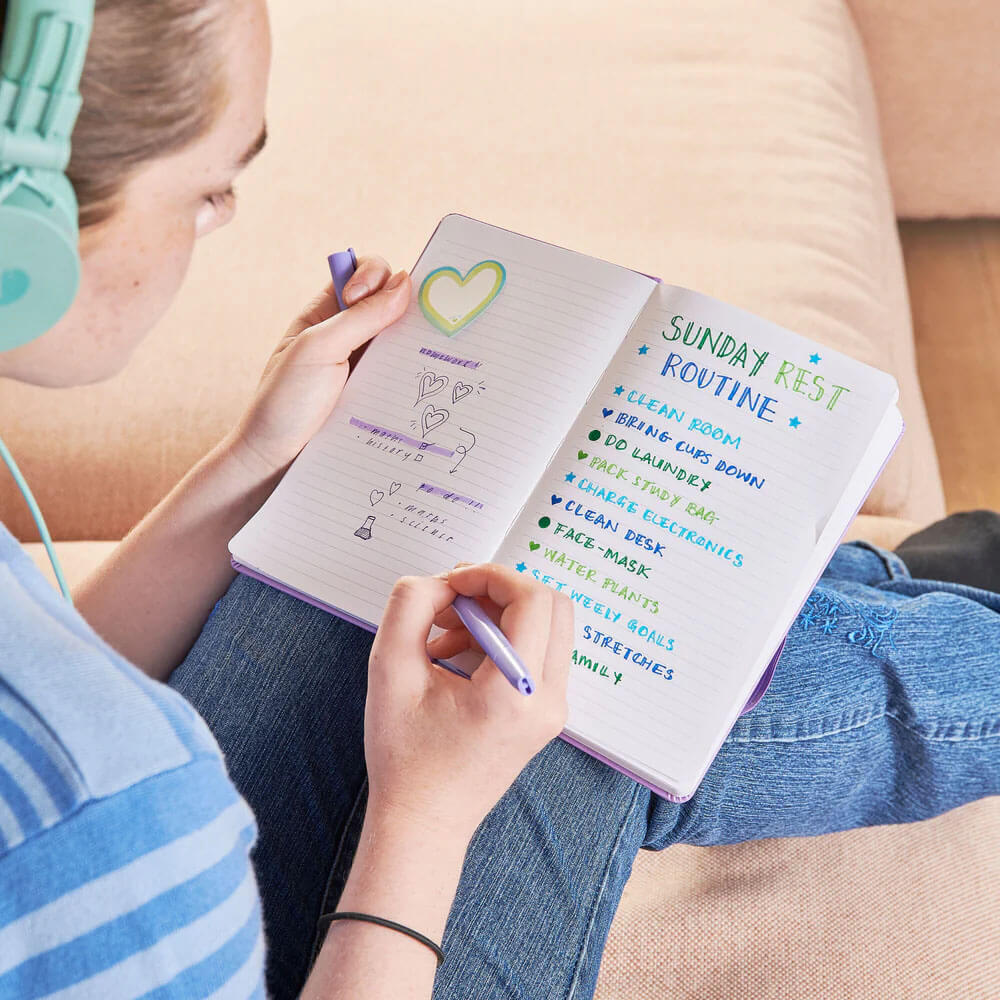 HOMEWORK!
· maths
· history
to do in
· maths
· science
SUNDAY REST
ROUTINE
CLEAN ROOM
BRING CUPS DOWN
DO LAUNDRY
PACK STUDY BAG
CHARGE ELECTRONICS
CLEAN DESK
FACE-MASK
WATER PLANTS
SET WEEKLY GOALS
STRETCHES
AMILY